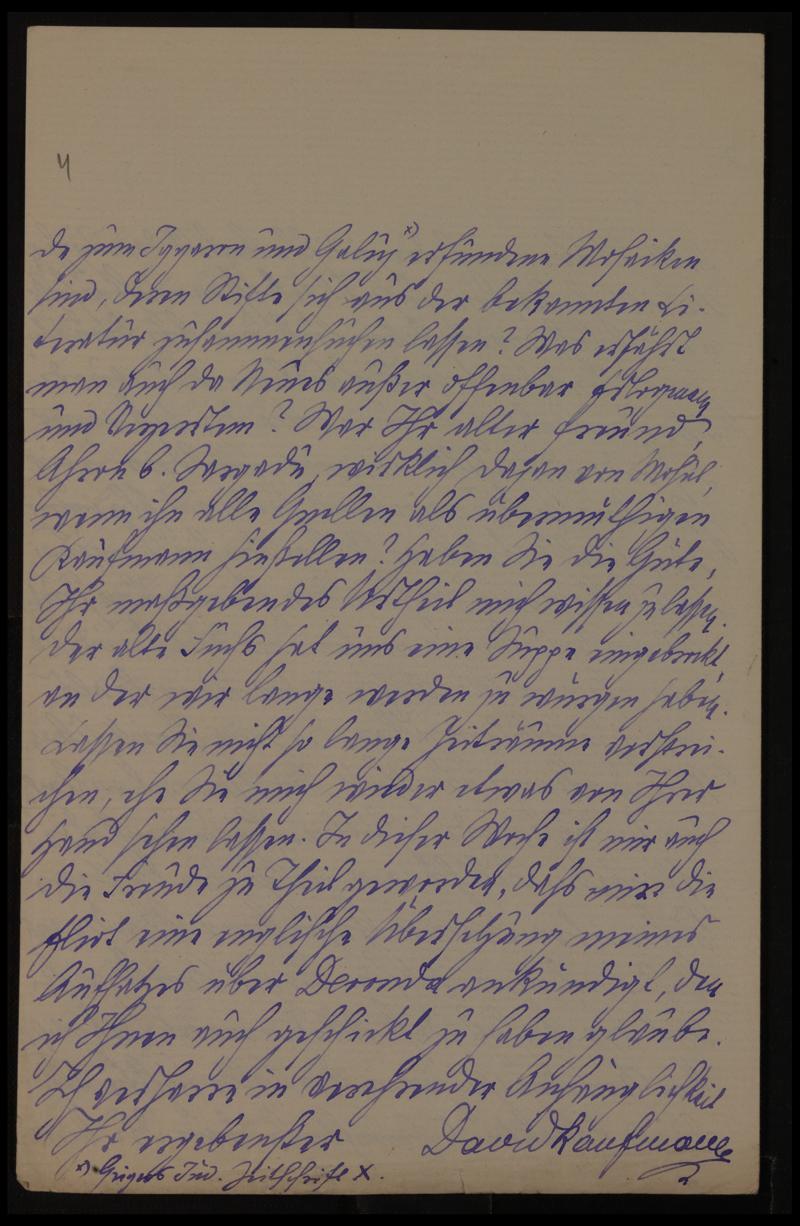 4
de zum Iggaron und Galuj x) erfundene Mosaiken
sind, deren Stifte sich aus der bekannten Li-
teratur zusammensuchen lassen? Was erfährt
man auch da Neues außer offenbar
und ? War Ihr alter Freund,
Ahron b. Sargadu, wirklich Dajan von Mosul,
wenn ihn alle Quellen als übermüthigen
Kaufmann hinstellen? Haben Sie die Güte,
Ihr maßgebendes Urtheil mich wissen zu lassen.
Der alte Fuchs hat uns eine Suppe eingebrockt
an der wir lange werden zu würgen haben.
Lassen Sie nicht so lange Zeiträume verstrei-
chen, ehe Sie mich wieder etwas von Ihrer
Hand sehen lassen. In dieser Woche ist mir auch
die Freude zu Theil geworden, dass mir die
eine englische Übersetzung meines
Aufsatzes über Deronda ankündigt, den
ich Ihnen auch geschickt zu haben glaube.
Ich verharre in verehrender Anhänglichkeit
Ihr ergebenster David Kaufmann
x) Geigers Jüd. Zeitschrift X.